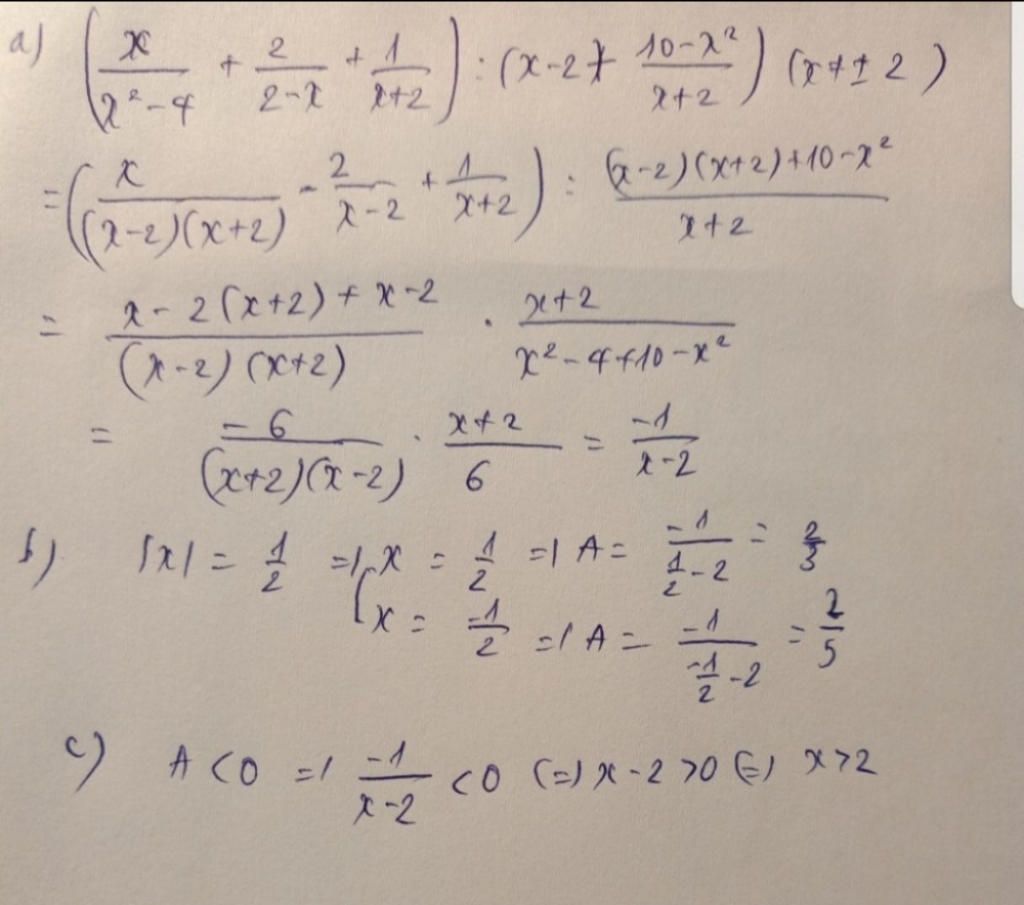 a) (x/(x²-4) + 2/(2-x) + 1/(x+2)) : (x-2+ (10-x²)/(x+2)) (x≠±2)
= (x/((x-2)(x+2)) - 2/(x-2) + 1/(x+2)) : ((x-2)(x+2)+10-x²)/(x+2)
= (x-2(x+2)+x-2)/((x-2)(x+2)) · (x+2)/(x²-4+10-x²)
= -6/((x+2)(x-2)) · (x+2)/6 = -1/(x-2)
b) |x| = 1/2 => [x = 1/2 => A = -1/(1/2-2) = 2/3
x = -1/2 => A = -1/(-1/2-2) = 2/5
c) A<0 => -1/(x-2) <0 (=) x-2>0 (=) x>2